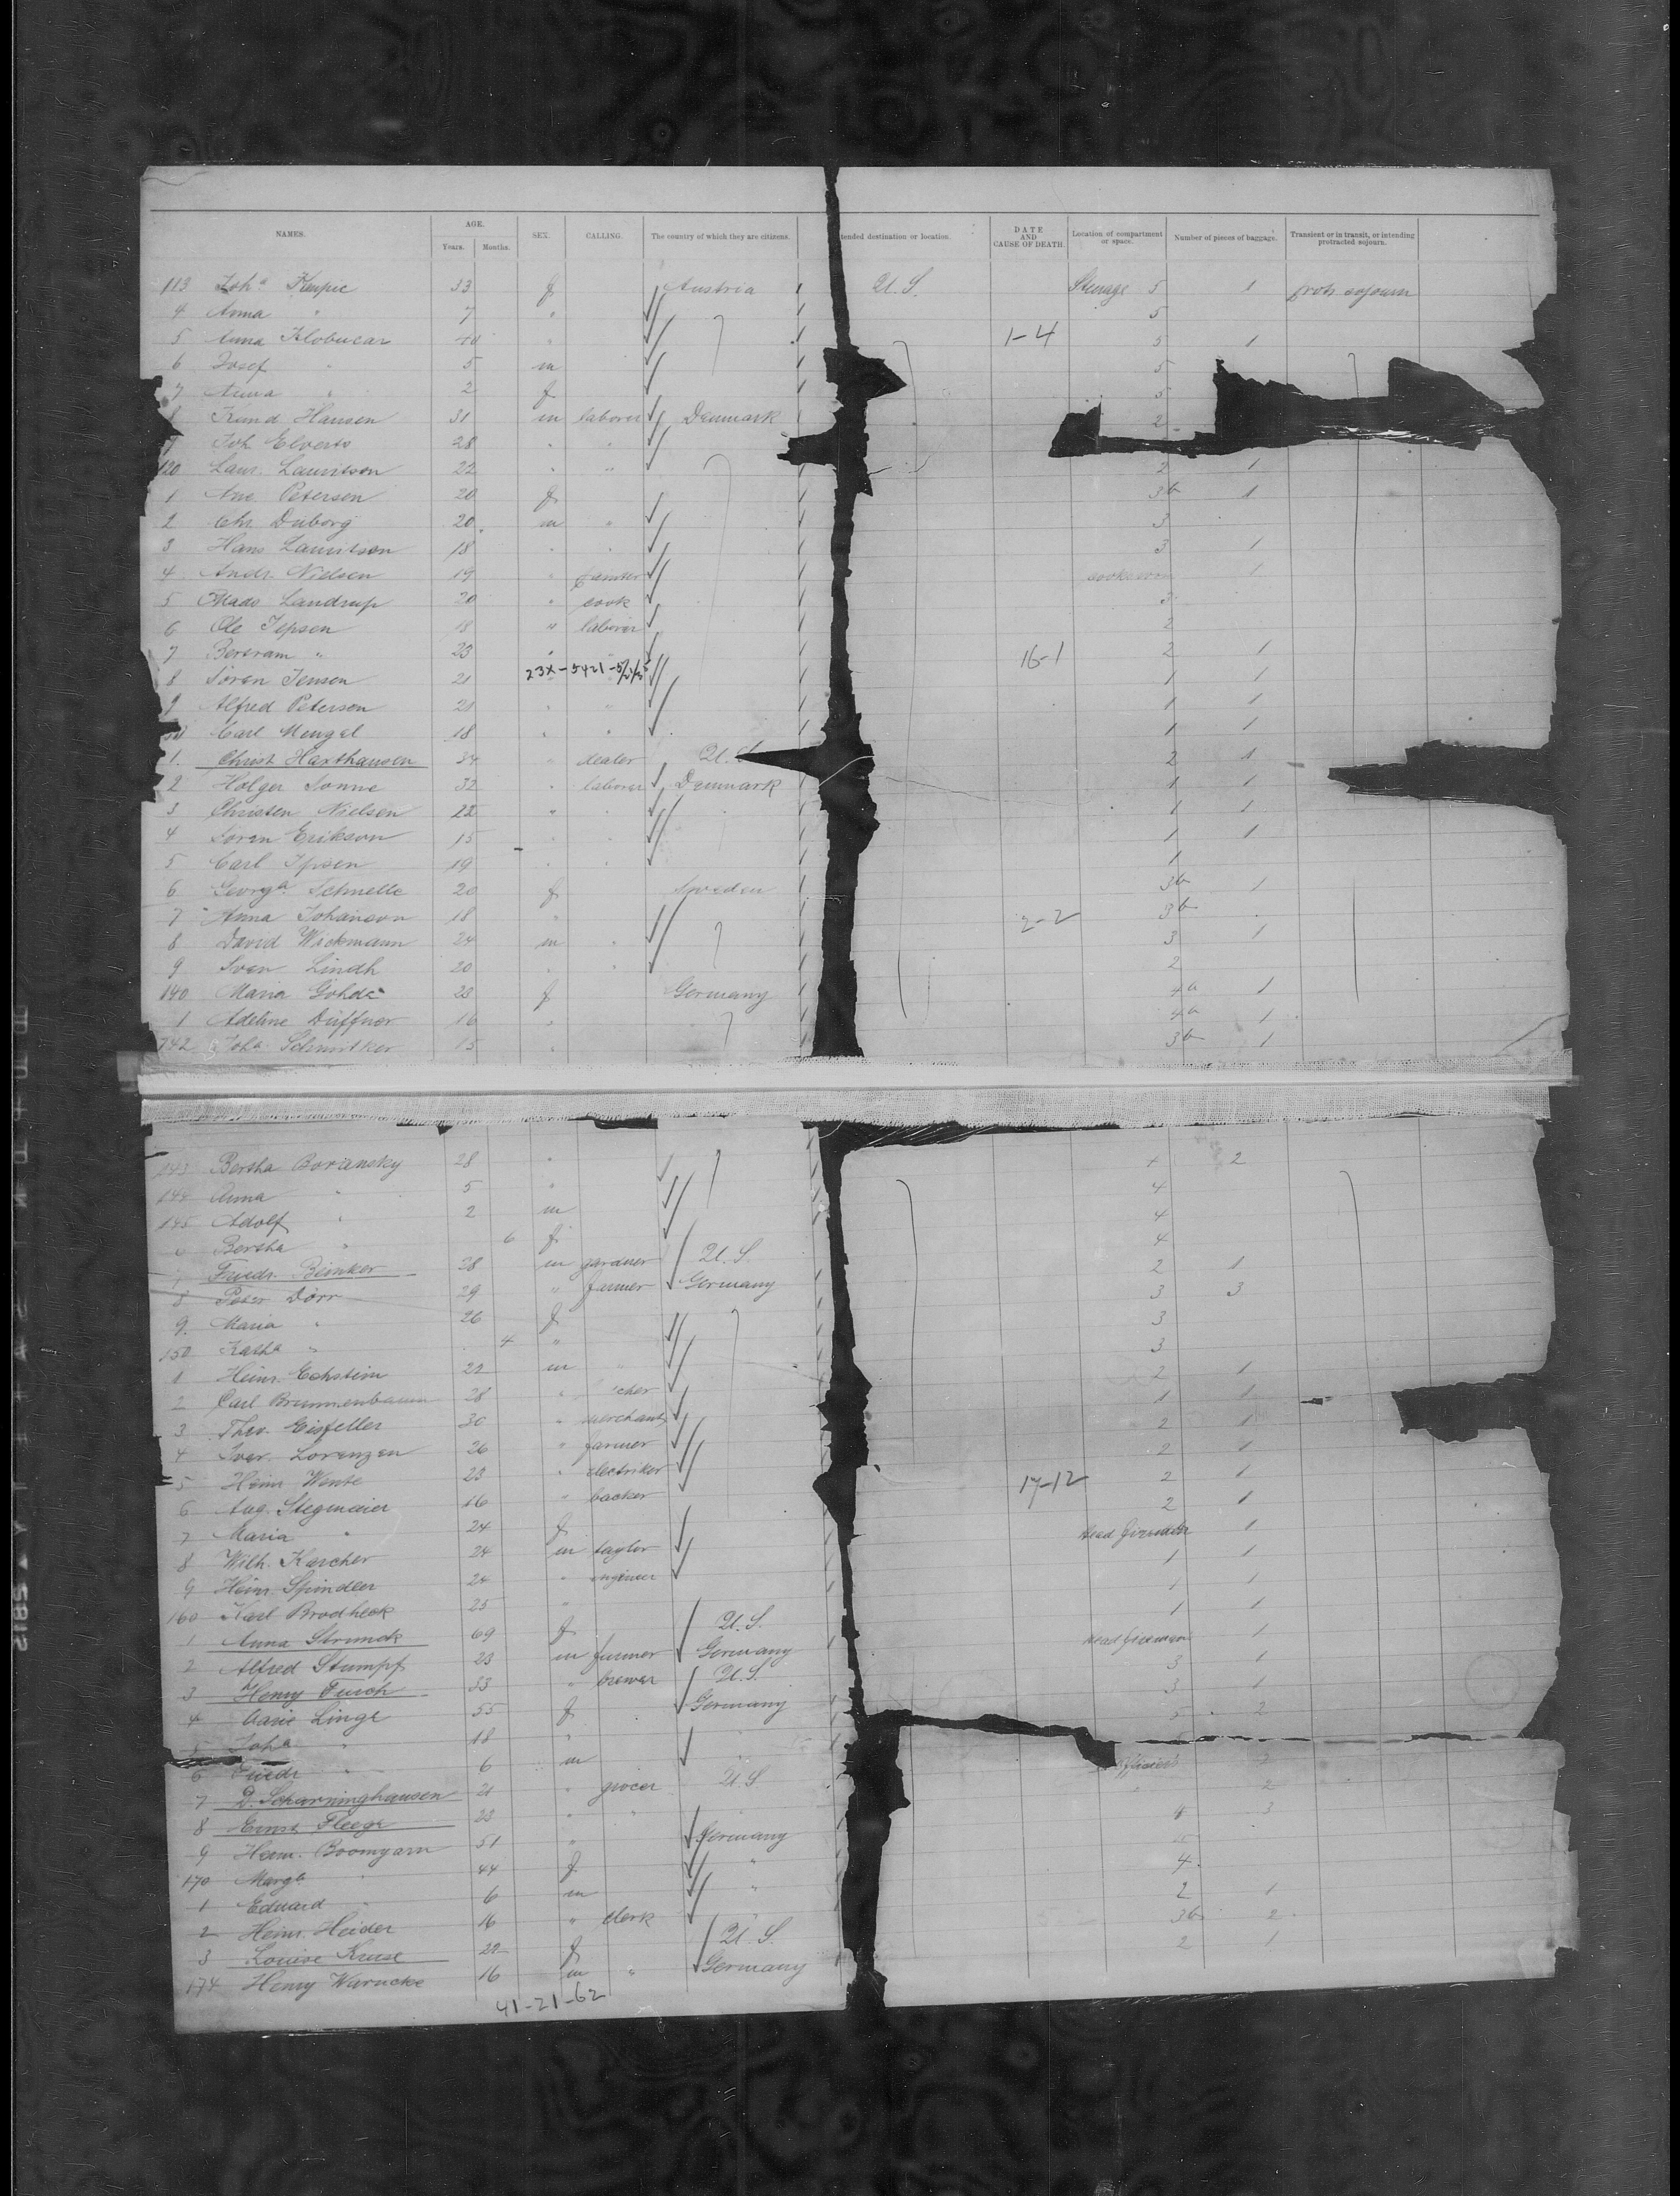 NAMES. AGE. Years. Months. SEX. CALLING. The country of which they are citizens. tended destination or location. DATE AND CAUSE OF DEATH. Location of compartment or space. Number of pieces of baggage. Transient or in transit, or intending protracted sojourn.
113 Joha 33 f Austria U.S. Steerage 5 1 protr sojourn
4 Anna " 7 " 5
5 Anna Klobucar " 1-4 5 1
6 Josef " 5 m 5
7 Anna " 2 f 5
8 Knud Hansen 31 m laborer Denmark 2
Joh Elverts 28 " "
120 Laur. Lauritsen 22 " " 2 1
1 Ane Petersen 20 f 3b 1
2 Chr. Duborg 20 m " 3
3 Hans Lauritsen 18 " " 3 1
4 Andr. Nielsen 19 " 1
5 Mads Landrup 20 " cook 3
6 Ole Jepsen 18 " laborer 2
7 Bertram " 23 " 16-1 2 1
8 Soren Jensen 21 23X-5421- 1 1
9 Alfred Petersen 21 " " 1 1
Carl Mengel 18 " " 1 1
1. Christ Harthausen 34 " dealer U.S. 2 1
2 Holger Sonne 32 " laborer Denmark 1 1
3 Christen Nielsen 22 " " 1 1
4 Soren Erikson 15 " " 1 1
5 Carl Ipsen 19 " " 1
6 Georga Schnelle 20 f Sweden 3b 1
7 Anna Johanson 18 " 2-2 3b
8 David Wickmann 24 m " 3 1
9 Sven Lindh 20 " " 2
140 Maria Gohde 23 f Germany 4a 1
1 Adeline Duffner 16 " 4a 1
142 Joha Schnitker 15 " 3b 1
143 Bertha Boransky 28 " 4 2
144 Anna " 5 " 4
145 Adolf " 2 m 4
6 Bertha " 6 f 4
Friedr. Beinker 28 m gardner U.S. 2 1
8 Peter Dörr 29 " farmer Germany 3 3
9. Maria " 26 f 3
150 Katha " 4 " 3
1 Heinr. Eckstein 22 m " 2 1
2 Carl Brunnenbaum 28 " 1 1
3 Theo. Eisfeller 30 " merchant 2 1
4 Iver. Lorenzen 26 " farmer 2 1
5 Heinr Wente 23 " electriker 17-12 2 1
6 Aug. Stegmaier 16 " backer 2 1
7 Maria " 24 f Head fireman 1
8 Wilh. Karcher 24 m taylor 1 1
9 Heinr. Spindler 24 " engineer 1 1
160 Karl Brodbeck 25 " 1 1
1 Anna Strunck 69 f U.S. Head fireman 1
2 Alfred Stumpf 23 m farmer Germany 3 1
3 Henry Pusch 33 " brewer U.S. 3 1
4 Linge 55 f Germany 5 2
Joha " 18 "
6 Friedr " 6 m
7 D. Scharninghausen 21 " grocer U.S. 2
8 Ernst Fleege 23 " " 4 3
9 Herm. Boomgarn 51 " Germany
170 Marga " 44 f " 4
1 Eduard " 6 m " 2 1
2 Heinr. Heider 16 " clerk " 3b 2
3 Louise Kruse 22 f U.S. 2 1
174 Henry Warncke 16 m " Germany
41-21-62